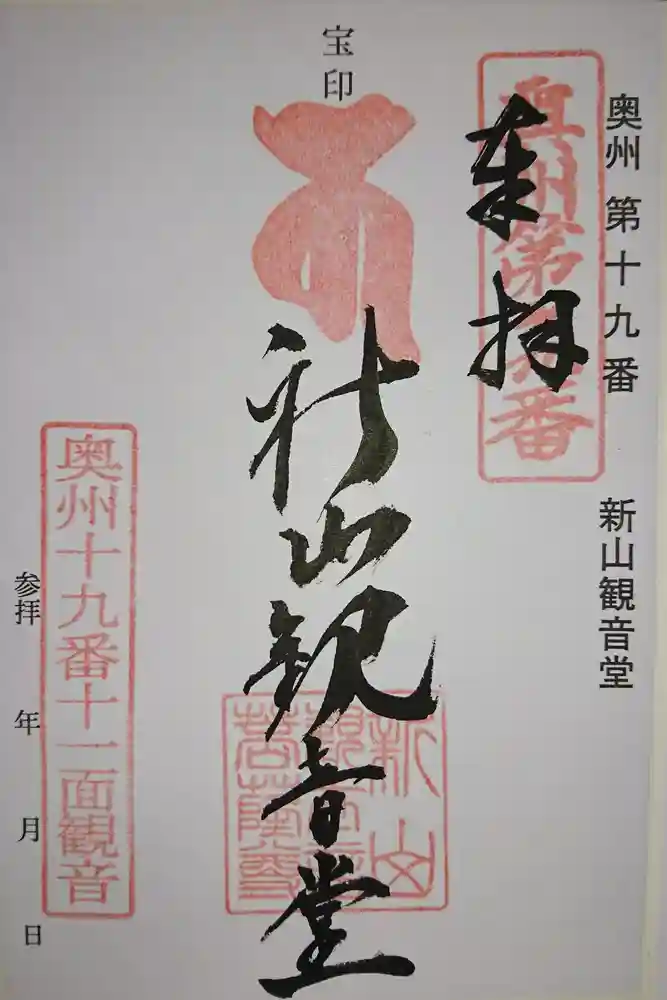 奥州 第十九番 新山観音堂
奉拝
奥州第十九番
宝印
新山観音堂
奥州十九番十一面観音
参拝 年 月 日